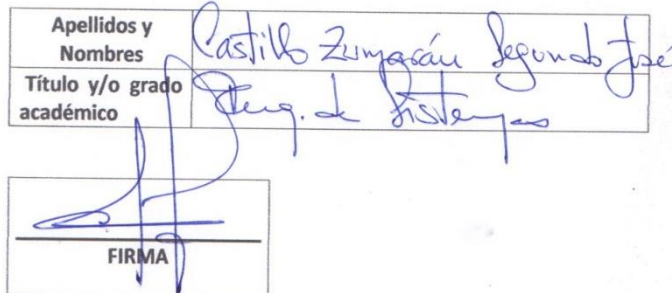 Apellidos y
Nombres
Castillo Zumarán Segundo José
Título y/o grado
académico
Ing. de Sistemas
FIRMA